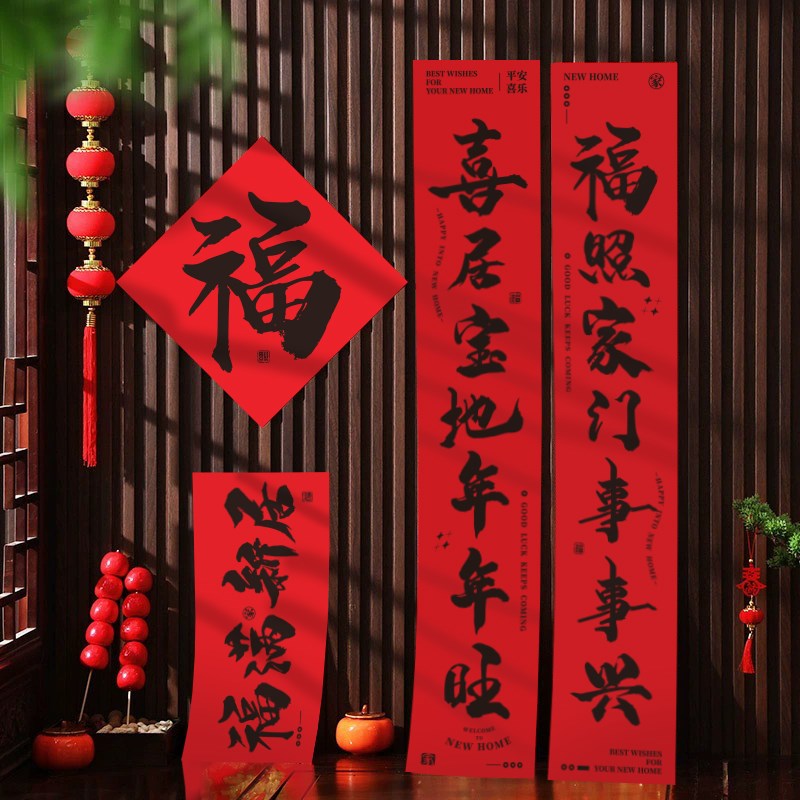 福
BEST WISHES
FOR
YOUR NEW HOME
平安
喜乐
喜居宝地年年旺
"HAPPY INTO NEW HOME"
GOOD LUCK KEEPS COMING
WELCOME
TO
NEW HOME
NEW HOME
家
福照家门事事兴
GOOD LUCK KEEPS COMING
"HAPPY INTO NEW HOME"
BEST WISHES
FOR
YOUR NEW HOME
福满新居